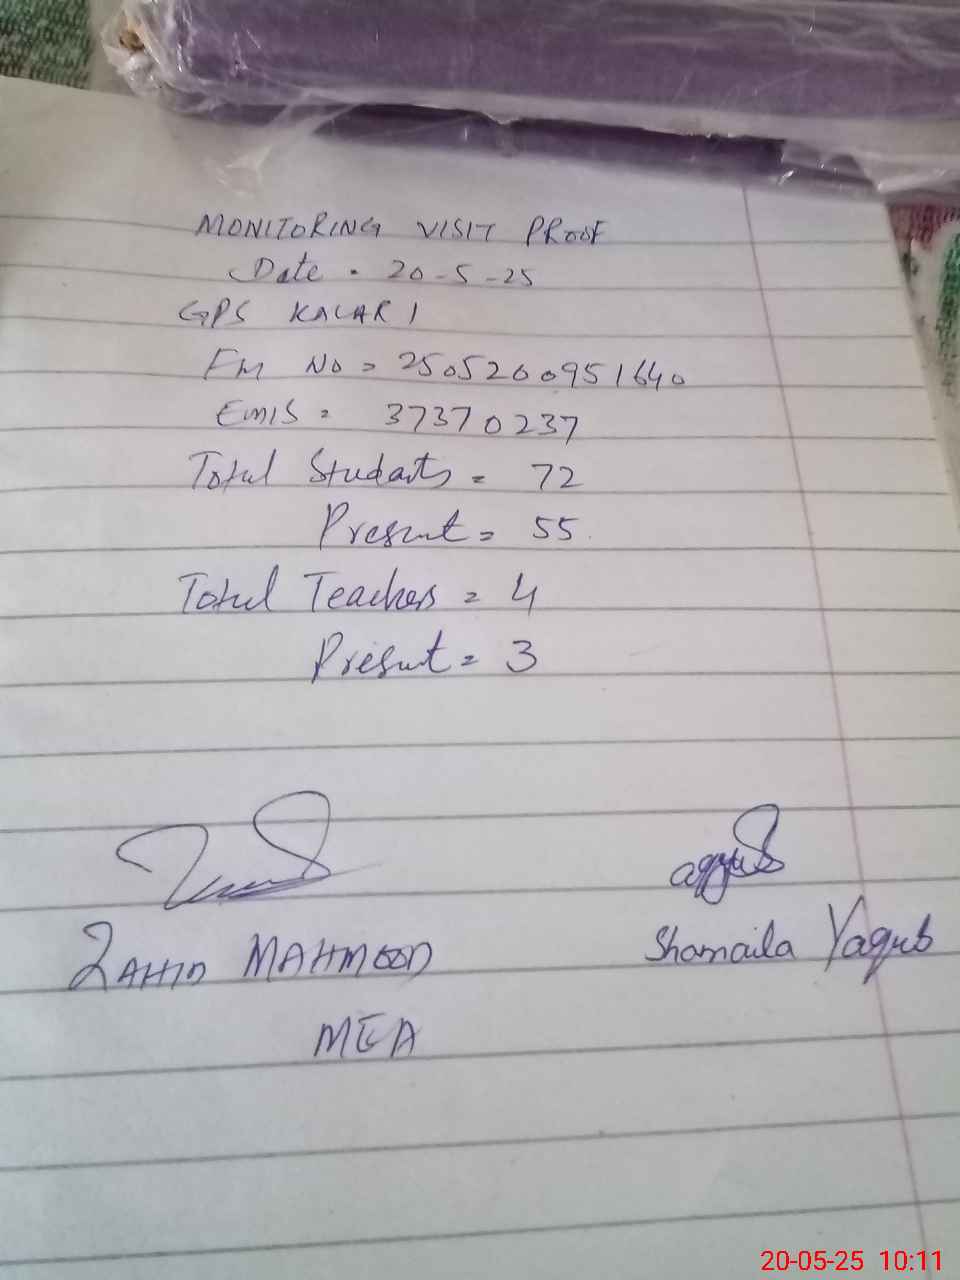 MONITORING VISIT PROOF
Date . 20-5-25
GPS KALAR 1
FM No = 2505200951640
EMIS = 37370237
Total Students = 72
Present = 55
Total Teachers = 4
Present = 3
ZAHID MAHMOOD
Shamaila Yaqub
MEA
20-05-25 10:11